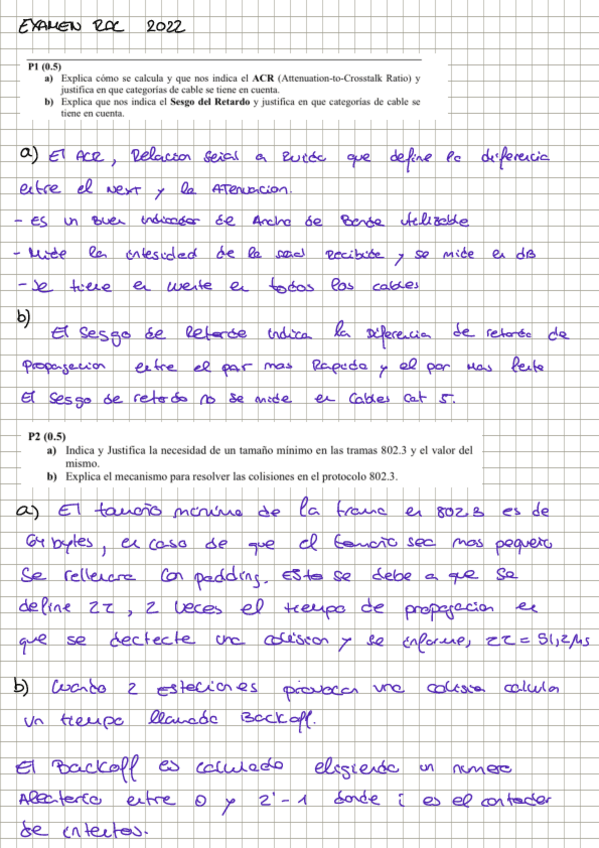 EXAMEN RDC 2022
P1 (0.5)
a) Explica cómo se calcula y que nos indica el ACR (Attenuation-to-Crosstalk Ratio) y
justifica en que categorías de cable se tiene en cuenta.
b) Explica que nos indica el Sesgo del Retardo y justifica en que categorías de cable se
tiene en cuenta.
a) El ACR, Relacion señal a Ruido que define la diferencia
entre el NEXT y la Atenuacion.
- es un Buen indicador de Ancho de Banda utilizable
- Mide la intesidad de la señal Recibida y se mide en dB
- Se tiene en cuenta en todos los cables
b)
El Sesgo de Retardo indica la Diferencia de retardo de
propagacion entre el par mas Rapido y el par mas lento
El Sesgo de retardo no se mide en cables cat 5.
P2 (0.5)
a) Indica y Justifica la necesidad de un tamaño mínimo en las tramas 802.3 y el valor del
mismo.
b) Explica el mecanismo para resolver las colisiones en el protocolo 802.3.
a) El tamaño minimo de la trama en 802.3 es de
64 bytes, en caso de que el tamaño sea mas pequeño
Se rellenara con padding. Esto se debe a que se
define 2τ, 2 veces el tiempo de propagacion en
que se dectecte una colision y se informe, 2τ = 51,2 μs
b) Cuando 2 estaciones provocan una colision calculan
un tiempo llamado Backoff.
El Backoff es calculado eligiendo un numero
Aleatorio entre 0 y 2ⁱ-1 donde i es el contador
de intentos.